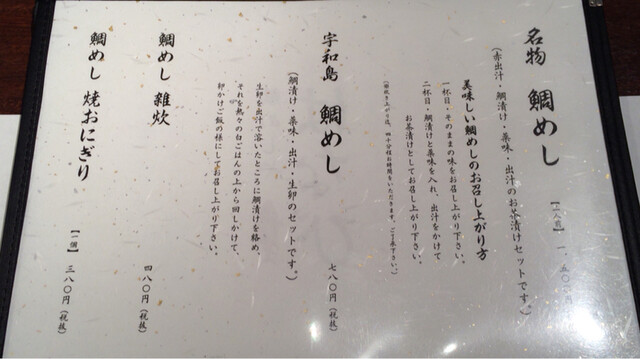 名物 鯛めし
(赤出汁・鯛漬け・薬味・出汁のお茶漬けセットです。)
美味しい鯛めしのお召し上がり方
一杯目・そのままの味をお召し上がり下さい。
二杯目・鯛漬けと薬味を入れ、出汁をかけて
お茶漬けとしてお召し上がり下さい。
宇和島 鯛めし
七八〇円(税抜)
(鯛漬け・薬味・出汁・生卵のセットです。)
生卵を出汁で溶いたところに鯛漬けを絡め、
それを熱々の白ごはんの上から回しかけて、
卵かけご飯の様にしてお召し上がり下さい。
鯛めし 雑炊
四八〇円(税抜)
鯛めし 焼おにぎり
【一個】 三八〇円(税抜)